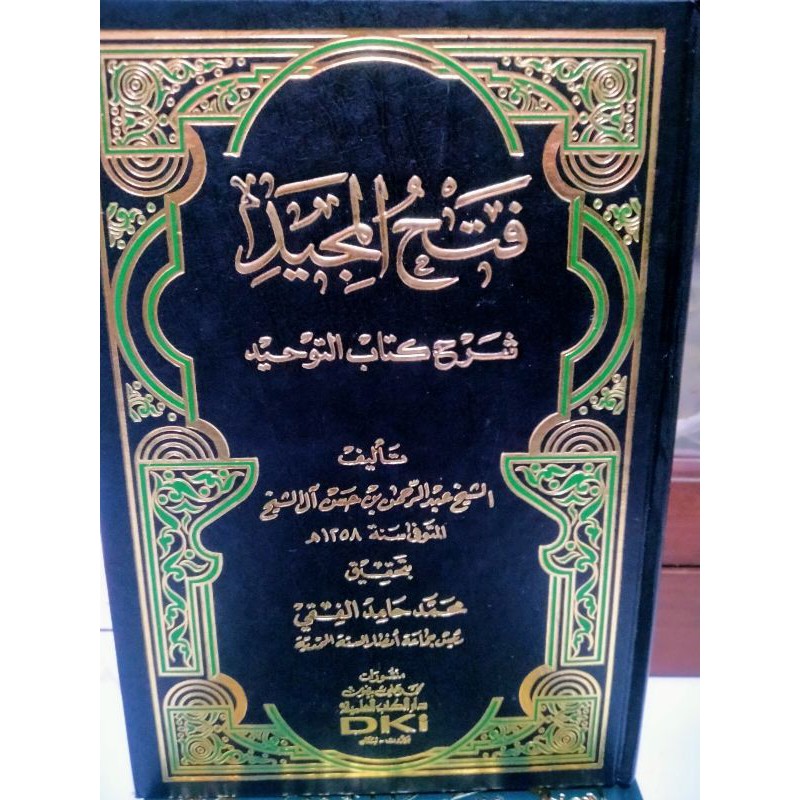 فَتْحُ المَجِيدِ
شَرْح كتاب التوحيد
تأليف
الشيخ عبد الرحمن بن حسن آل الشيخ
المتوفى سنة ١٢٥٨هـ
بتحقيق
محمّد حامد الفقي
رئيس جماعة أنصار السنة المحمدية
منشورات
محمد علي بيضون
دار الكتب العلمية
DKi
بيروت - لبنان